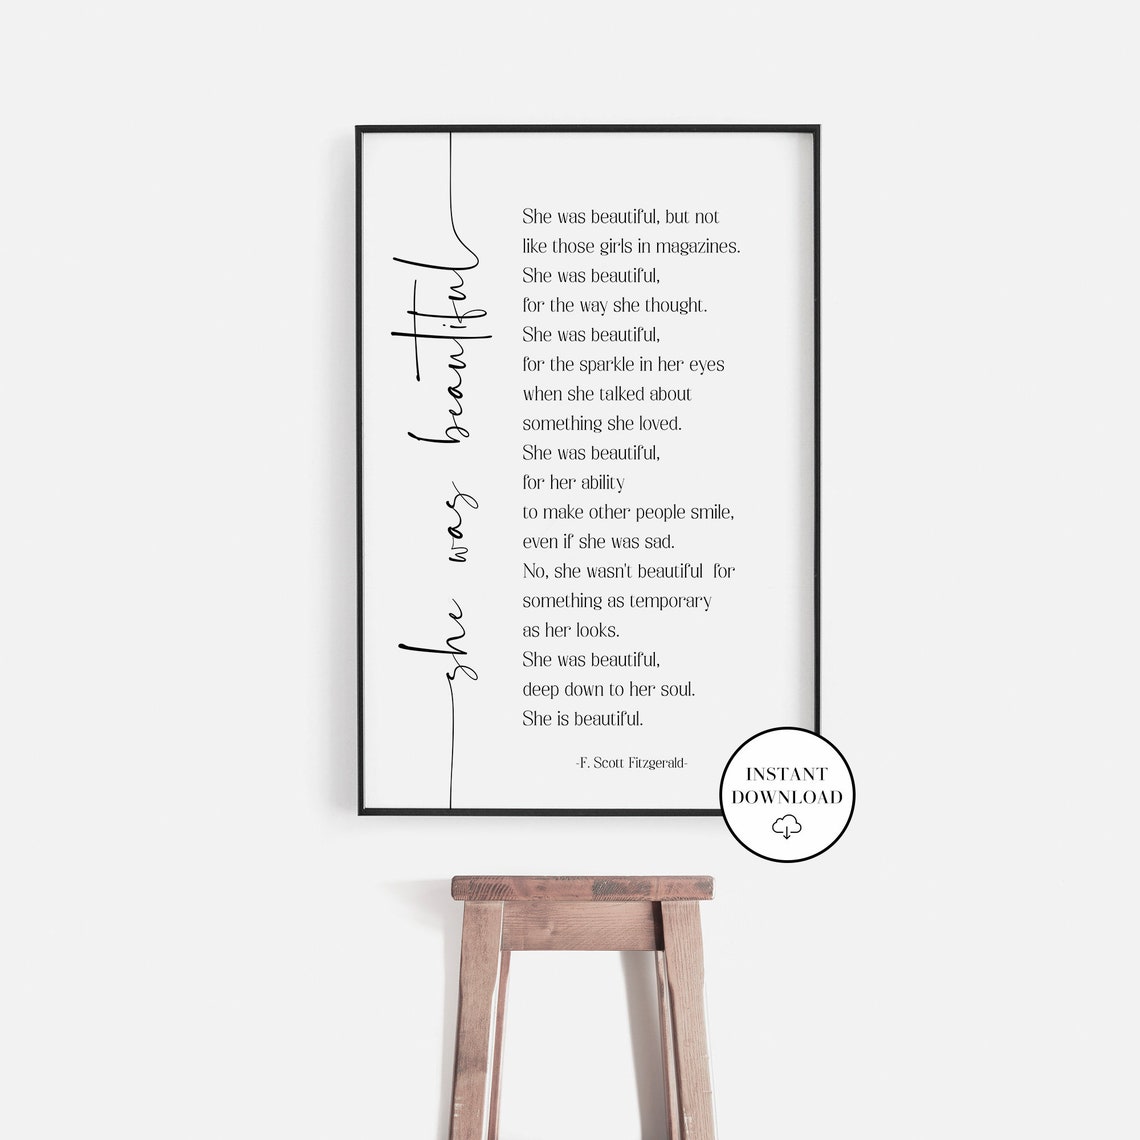 she was beautiful
She was beautiful, but not
like those girls in magazines.
She was beautiful,
for the way she thought.
She was beautiful,
for the sparkle in her eyes
when she talked about
something she loved.
She was beautiful,
for her ability
to make other people smile,
even if she was sad.
No, she wasn't beautiful  for
something as temporary
as her looks.
She was beautiful,
deep down to her soul.
She is beautiful.
-F. Scott Fitzgerald-
INSTANT
DOWNLOAD